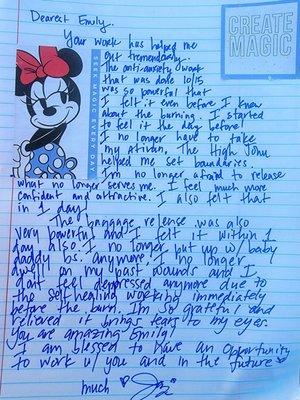 Dearest Emily,
CREATE
MAGIC
Your work has helped me
out tremendously.
The anti-anxiety work
that was done 10/15
was so powerful that
I felt it even before I knew
about the burning. I started
to feel it the day before!
I no longer have to take
my ativan. The High John
helped me set boundaries.
I'm no longer afraid to release
what no longer serves me. I feel much more
confident and attractive. I also felt that
in 1 day!
The baggage release was also
very powerful and I felt it within 1
day also. I no longer put up w/ baby
daddy bs. anymore. I no longer
dwell on my past wounds and I
don't feel depressed anymore due to
the self healing working immediately
before the burn. I'm so grateful and
relieved it brings tears to my eyes.
You are amazing Emily.
I am blessed to have an opportunity
to work w/ you and in the future
much
SEEK MAGIC EVERY DAY